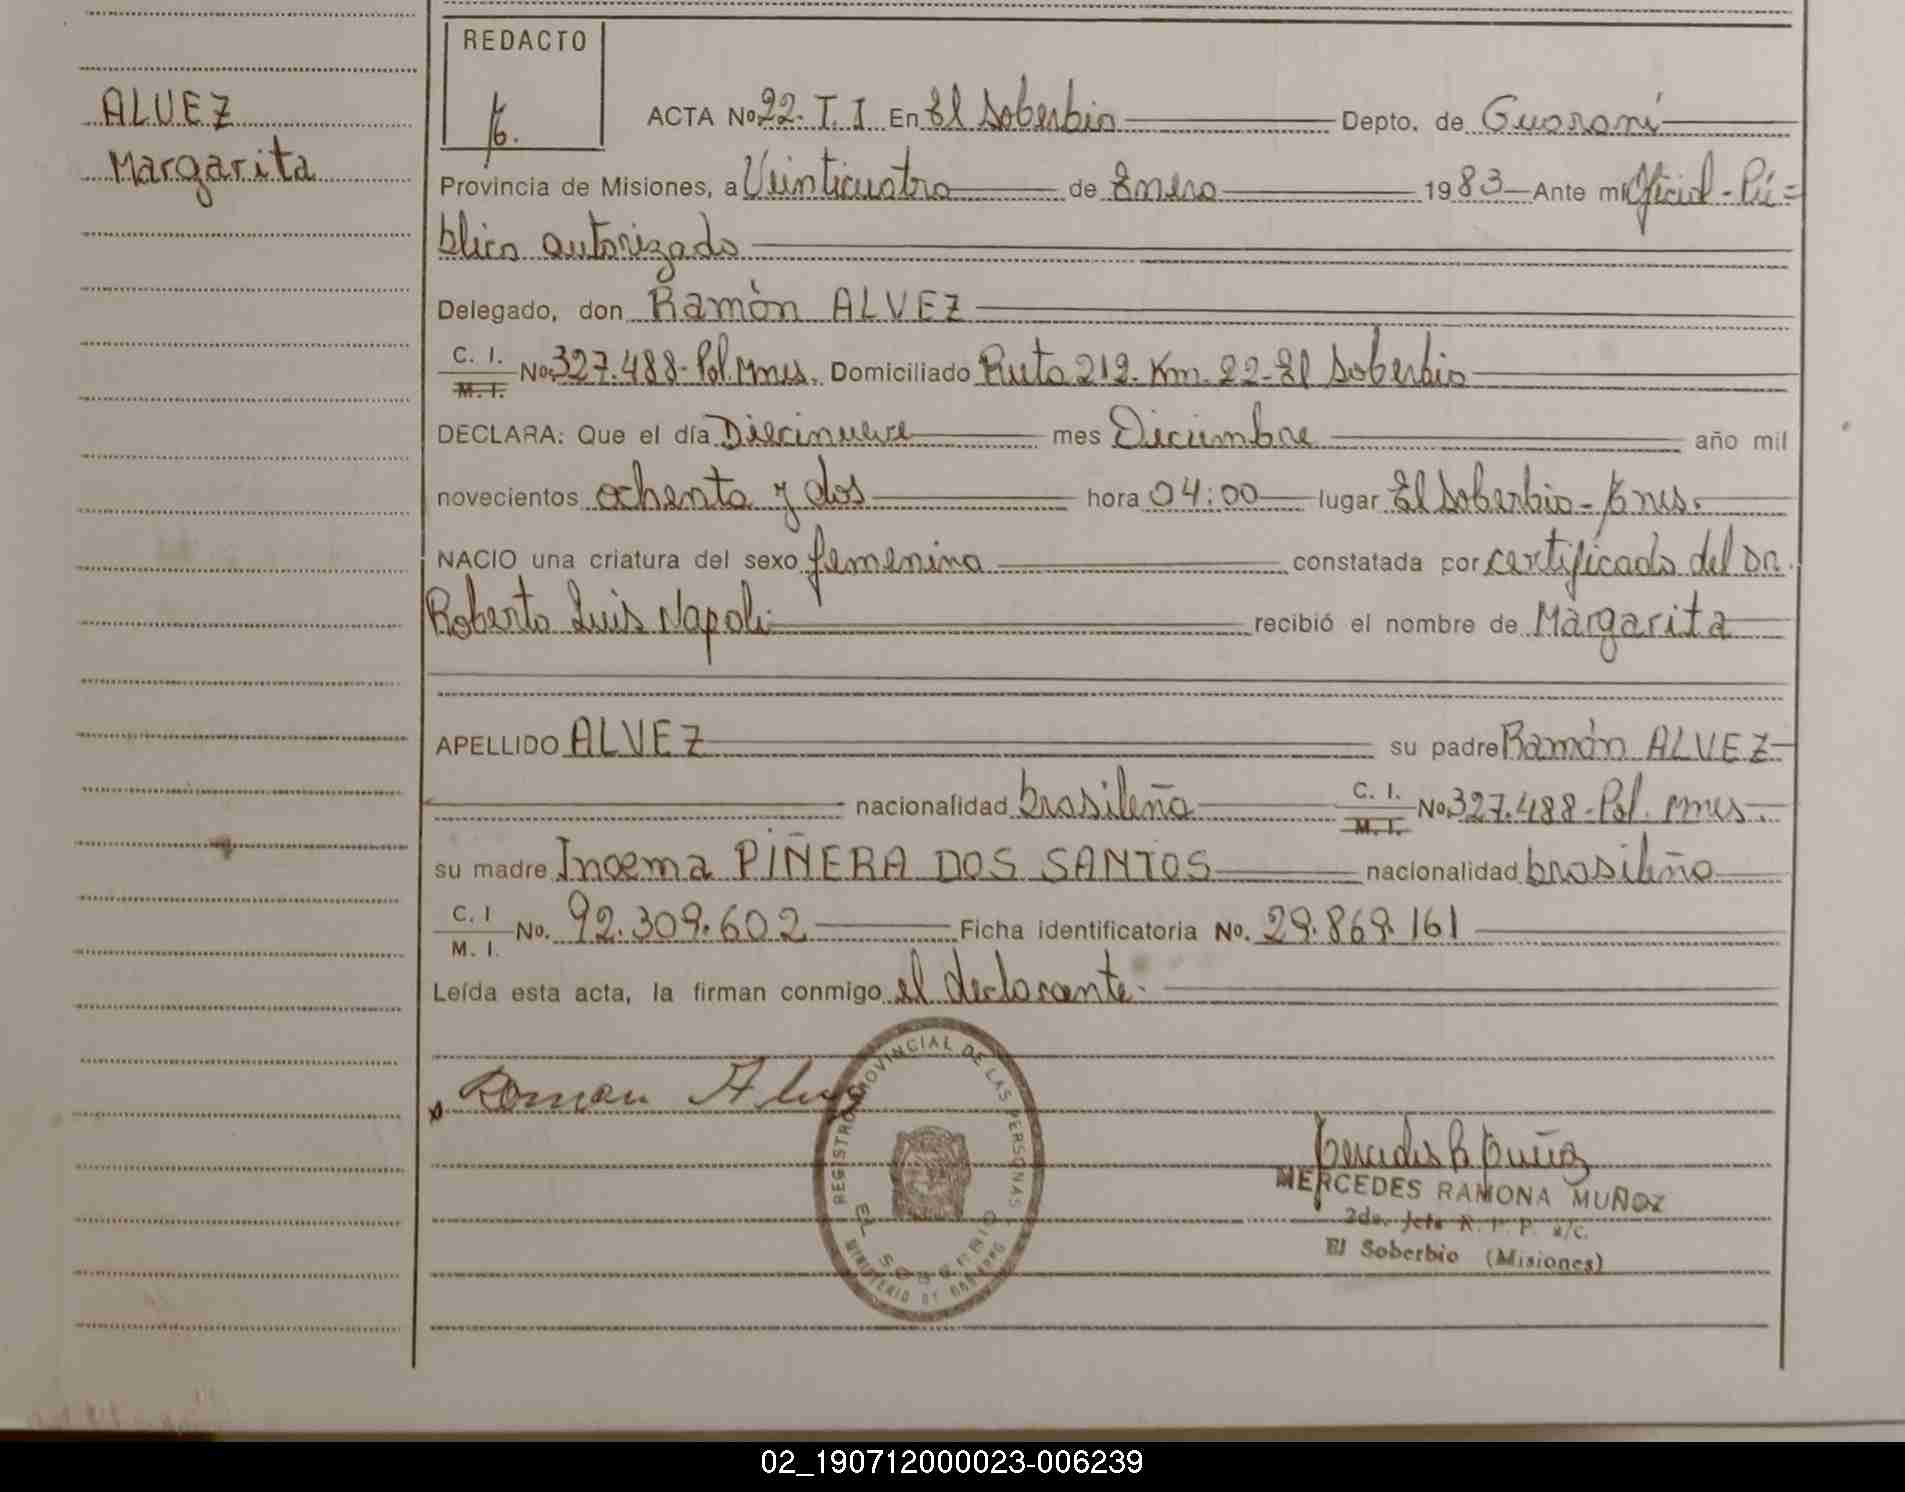 REDACTO
ALVEZ
Margarita
ACTA No 22. T. I En El Soberbio Depto. de Guaraní
Provincia de Misiones, a Veinticuatro de Enero 1983 Ante mi Oficial - Pú=
blico autorizado
Delegado, don Ramón ALVEZ
C. I.
M. I.
No. 327.488- Pol. Mnes. Domiciliado Ruta 212. Km. 22- El Soberbio
DECLARA: Que el día Diecinueve mes Diciembre año mil
novecientos ochenta y dos hora 04:00 lugar El Soberbio - Mnes.
NACIO una criatura del sexo femenino constatada por certificado del Dr.
Roberto Luis Napoli recibió el nombre de Margarita
APELLIDO ALVEZ su padre Ramón ALVEZ
nacionalidad brasileña C. I.
M. I. No. 327.488- Pol. Mnes.
su madre Inoema PIÑERA DOS SANTOS nacionalidad brasileña
C. I
M. I.
No. 92.309.602 Ficha identificatoria No. 29.869.161
Leída esta acta, la firman conmigo el declarante.
Roman Alves
REGISTRO PROVINCIAL DE LAS PERSONAS
EL SOBERBIO
MINISTERIO DE GOBIERNO
Mercedes R Muñoz
MERCEDES RAMONA MUÑOZ
2da. Jefe R. P. P. a/c.
El Soberbio (Misiones)
02_190712000023-006239